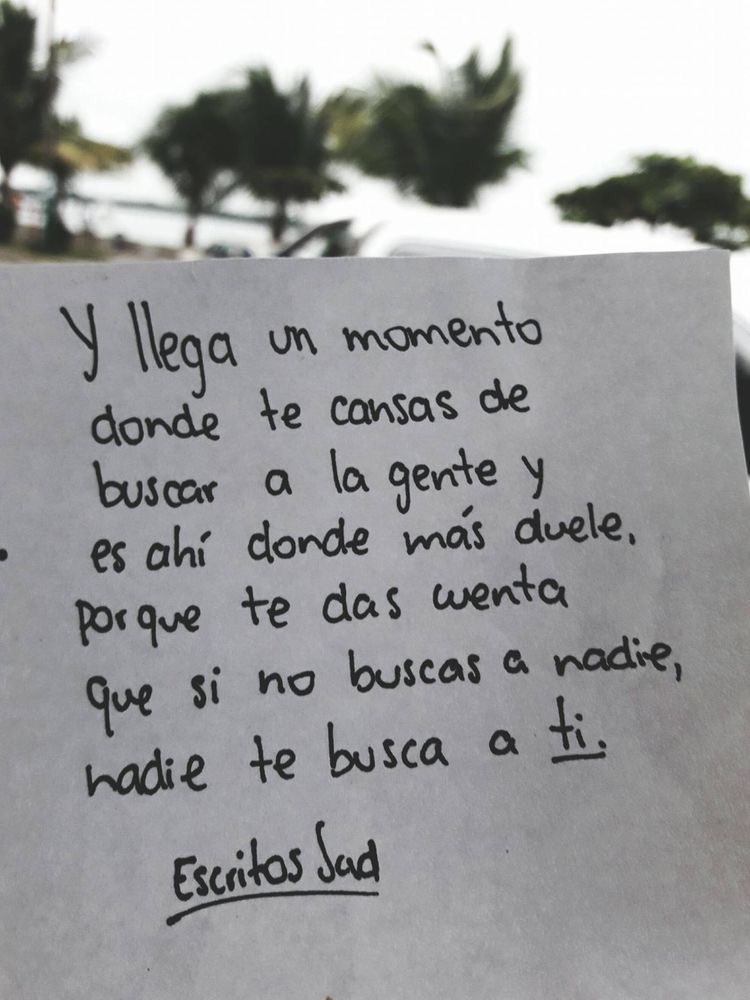 Y llega un momento
donde te cansas de
buscar a la gente y
es ahí donde más duele,
porque te das cuenta
que si no buscas a nadie,
nadie te busca a ti.
Escritos Sad